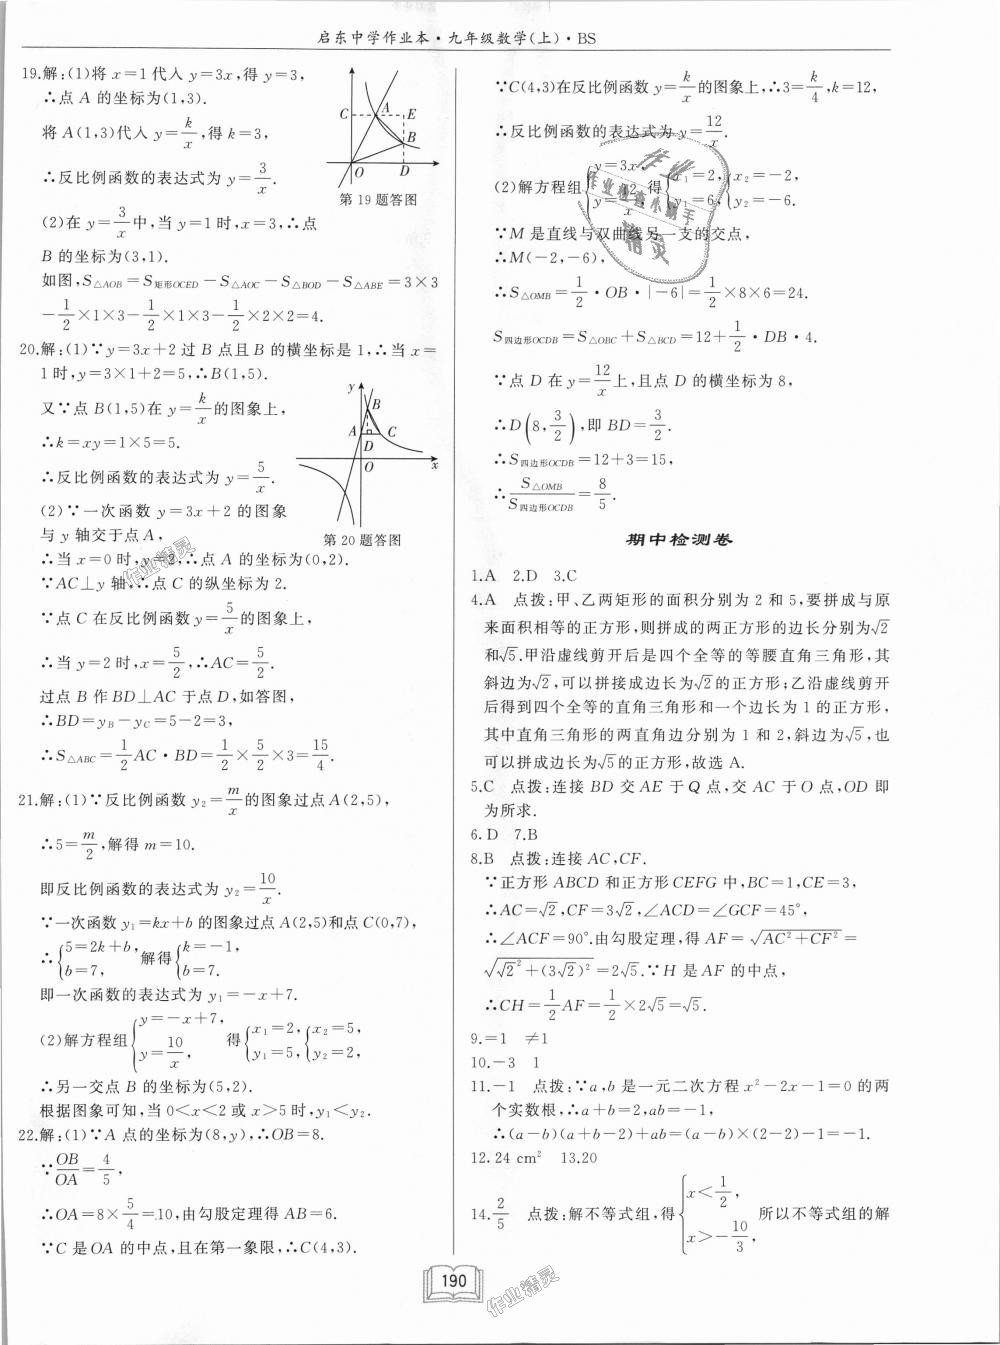 启东中学作业本·九年级数学(上)·BS
19.解:(1)将 x=1代入 y=3x,得 y=3,
∴点 A 的坐标为(1,3).
将 A(1,3)代入 y=k/x,得 k=3,
∴反比例函数的表达式为 y=3/x.
(2)在 y=3/x中,当 y=1时,x=3,∴点
B 的坐标为(3,1).
C A E
B
O D
第 19 题答图
如图,S△AOB=S矩形OCED-S△AOC-S△BOD-S△ABE=3×3
-1/2×1×3-1/2×1×3-1/2×2×2=4.
20.解:(1)∵y=3x+2 过 B 点且 B 的横坐标是 1,∴当 x=
1时,y=3×1+2=5,∴B(1,5).
又∵点 B(1,5)在 y=k/x的图象上,
∴k=xy=1×5=5.
∴反比例函数的表达式为 y=5/x.
(2)∵一次函数 y=3x+2 的图象
与 y 轴交于点 A,
y
B
A C
D
O x
第 20 题答图
∴当 x=0 时,y=2,∴点 A 的坐标为(0,2).
∵AC⊥y 轴,∴点 C 的纵坐标为 2.
∵点 C 在反比例函数 y=5/x的图象上,
∴当 y=2 时,x=5/2,∴AC=5/2.
过点 B 作 BD⊥AC 于点 D,如答图,
∴BD=yB-yC=5-2=3,
∴S△ABC=1/2AC·BD=1/2×5/2×3=15/4.
21.解:(1)∵反比例函数 y₂=m/x的图象过点 A(2,5),
∴5=m/2,解得 m=10.
即反比例函数的表达式为 y₂=10/x.
∵一次函数 y₁=kx+b 的图象过点 A(2,5)和点 C(0,7),
∴{5=2k+b, b=7, 解得{k=-1, b=7.
即一次函数的表达式为 y₁=-x+7.
(2)解方程组{y=-x+7, y=10/x, 得{x₁=2, y₁=5,{x₂=5, y₂=2,
∴另一交点 B 的坐标为(5,2).
根据图象可知,当 0<x<2 或 x>5 时,y₁<y₂.
22.解:(1)∵A 点的坐标为(8,y),∴OB=8.
∵OB/OA=4/5,
∴OA=8×5/4=10,由勾股定理得 AB=6.
∵C 是 OA 的中点,且在第一象限,∴C(4,3).
∵C(4,3)在反比例函数 y=k/x的图象上,∴3=k/4,k=12,
∴反比例函数的表达式为 y=12/x.
(2)解方程组{y=3x, y=12/x, 得{x₁=2, y₁=6,{x₂=-2, y₂=-6.
∵M 是直线与双曲线另一支的交点,
∴M(-2,-6),
∴S△OMB=1/2·OB·|-6|=1/2×8×6=24.
S四边形OCDB=S△OBC+S△BCD=12+1/2·DB·4.
∵点 D 在 y=12/x上,且点 D 的横坐标为 8,
∴D(8,3/2),即 BD=3/2.
∴S四边形OCDB=12+3=15,
∴S△OMB/S四边形OCDB=8/5.
期中检测卷
1.A 2.D 3.C
4.A 点拨:甲、乙两矩形的面积分别为 2 和 5,要拼成与原
来面积相等的正方形,则拼成的两正方形的边长分别为√2
和√5.甲沿虚线剪开后是四个全等的等腰直角三角形,其
斜边为√2,可以拼接成边长为√2的正方形;乙沿虚线剪开
后得到四个全等的直角三角形和一个边长为 1 的正方形,
其中直角三角形的两直角边分别为 1 和 2,斜边为√5,也
可以拼成边长为√5的正方形,故选 A.
5.C 点拨:连接 BD 交 AE 于 Q 点,交 AC 于 O 点,OD 即
为所求.
6.D 7.B
8.B 点拨:连接 AC,CF.
∵正方形 ABCD 和正方形 CEFG 中,BC=1,CE=3,
∴AC=√2,CF=3√2,∠ACD=∠GCF=45°,
∴∠ACF=90°.由勾股定理,得 AF=√(AC²+CF²)=
√(√2²+(3√2)²)=2√5.∵H 是 AF 的中点,
∴CH=1/2AF=1/2×2√5=√5.
9.=1 ≠1
10.-3 1
11.-1 点拨:∵a,b 是一元二次方程 x²-2x-1=0 的两
个实数根,∴a+b=2,ab=-1,
∴(a-b)(a+b-2)+ab=(a-b)×(2-2)-1=-1.
12.24 cm² 13.20
14.2/5 点拨:解不等式组,得{x<1/2, x>-10/3, 所以不等式组的解
190
作业
作业检查小助手
精灵
作业精灵
作业精灵